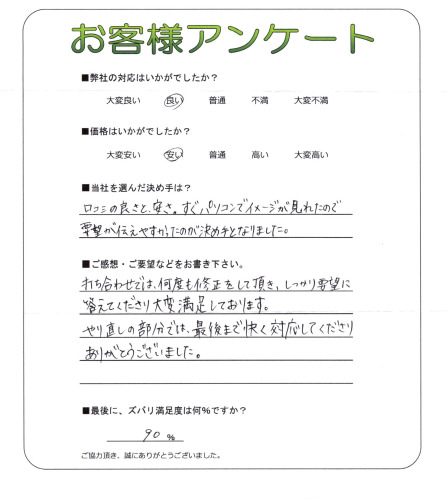 お客様アンケート
■弊社の対応はいかがでしたか？
大変良い 良い 普通 不満 大変不満
■価格はいかがでしたか？
大変安い 安い 普通 高い 大変高い
■当社を選んだ決め手は？
口コミの良さと、安さ。すぐパソコンでイメージが見れたので
要望が伝えやすかったのが決め手となりました。
■ご感想・ご要望などをお書き下さい。
打ち合わせでは、何度も修正をして頂き、しっかり要望に
答えてくださり大変満足しております。
やり直しの部分では、最後まで快く対応してくださり
ありがとうございました。
■最後に、ズバリ満足度は何%ですか？
90 %
ご協力頂き、誠にありがとうございました。